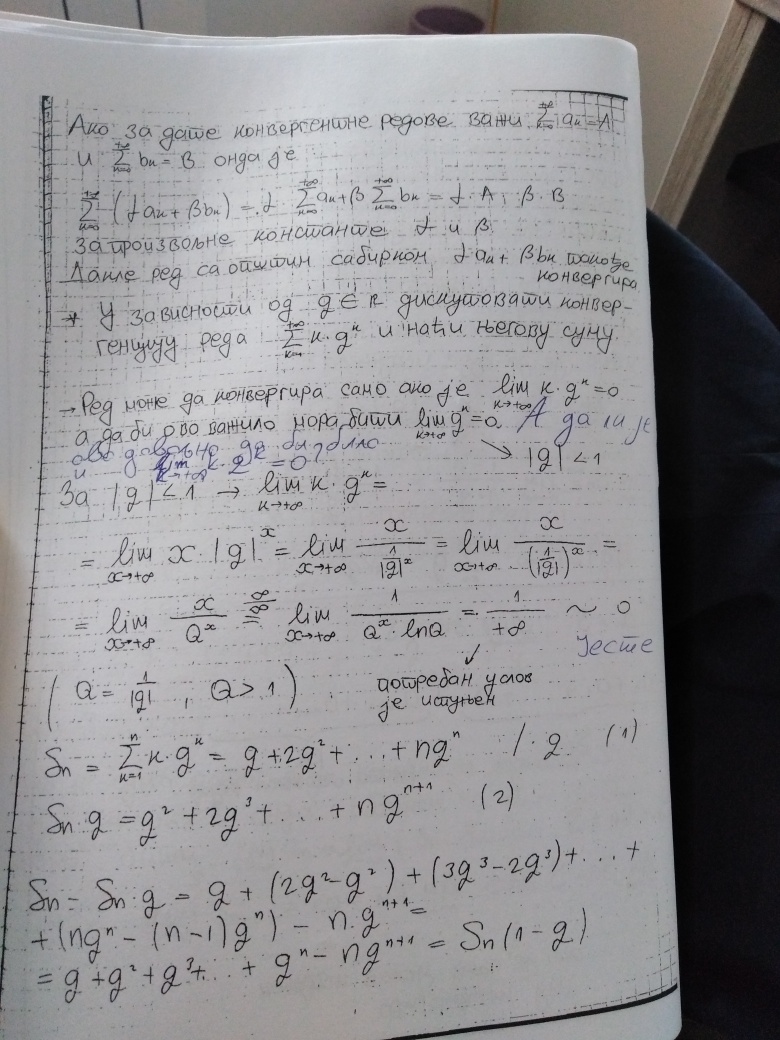 Ако за дате конвергентне редове важи \sum_{k=0}^{+\infty} a_k = A
и \sum_{k=0}^{+\infty} b_k = B онда је
\sum_{k=0}^{+\infty} (α a_k + β b_k) = α · \sum_{k=0}^{+\infty} a_k + β \sum_{k=0}^{+\infty} b_k = α · A + β · B
за произвољне константе α и β.
Дакле ред са општим сабирком α a_k + β b_k такође
конвергира
* У зависности од g ∈ R дискутовати конвер-
генцију реда \sum_{k=1}^{+\infty} k · g^k и наћи његову суму.
→ Ред може да конвергира само ако је \lim_{k→+∞} k · g^k = 0
а да би ово важило мора бити \lim_{k→+∞} g^k = 0. А да ли је
ово довољно да би било
и \lim_{k→+∞} k · g^k = 0?
↘ |g| < 1
За |g| < 1 → \lim_{k→+∞} k · g^k =
= \lim_{x→+∞} x · |g|^x = \lim_{x→+∞} \frac{x}{\frac{1}{|g|^x}} = \lim_{x→+∞} \frac{x}{(\frac{1}{|g|})^x} =
= \lim_{x→+∞} \frac{x}{Q^x} \overset{\frac{∞}{∞}}{=} \lim_{x→+∞} \frac{1}{Q^x · lnQ} = \frac{1}{+∞} ~ 0
Јесте
(Q = \frac{1}{|g|}, Q > 1)
потребан услов
је испуњен
S_n = \sum_{k=1}^{n} k · g^k = g + 2g^2 + ... + ng^n / · g (1)
S_n · g = g^2 + 2g^3 + ... + ng^{n+1} (2)
S_n - S_n · g = g + (2g^2 - g^2) + (3g^3 - 2g^3) + ... +
+ (ng^n - (n-1)g^n) - n · g^{n+1} =
= g + g^2 + g^3 + ... + g^n - ng^{n+1} = S_n(1 - g)